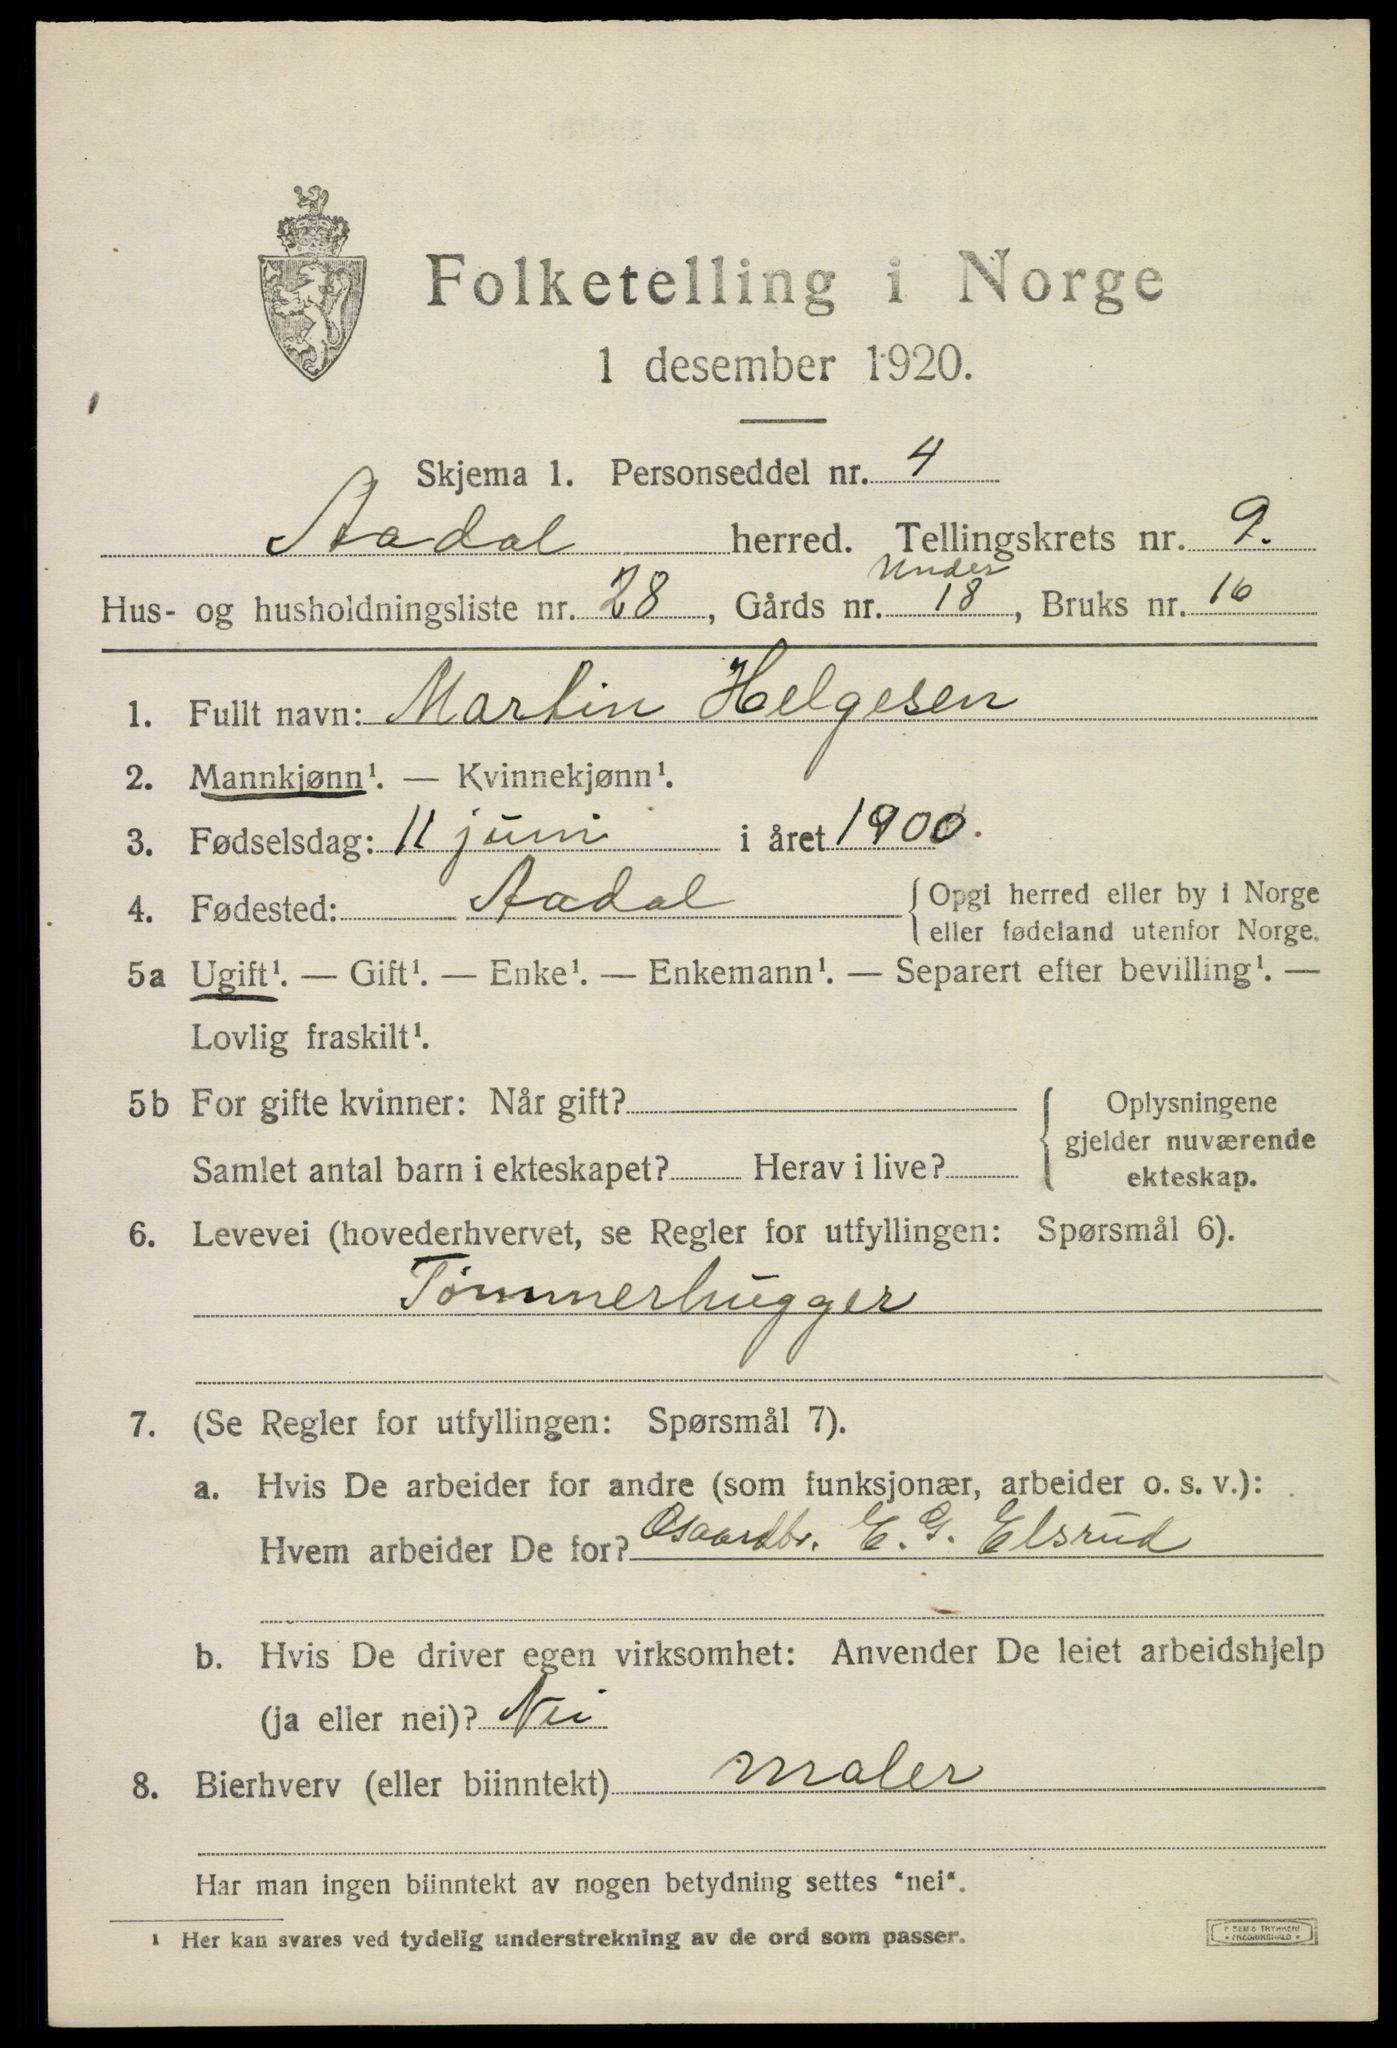 Folketelling i Norge
1 desember 1920.
Skjema 1. Personseddel nr. 4
Aadal herred. Tellingskrets nr. 9.
Under
Hus- og husholdningsliste nr. 28, Gårds nr. 18, Bruks nr. 16
1. Fullt navn: Martin Helgesen
2. Mannkjønn¹. — Kvinnekjønn¹.
3. Fødselsdag: 11 juni i året 1900.
4. Fødested: Aadal { Opgi herred eller by i Norge
eller fødeland utenfor Norge.
5a Ugift¹. — Gift¹. — Enke¹. — Enkemann¹. — Separert efter bevilling¹. —
Lovlig fraskilt¹.
5b For gifte kvinner: Når gift? { Oplysningene
gjelder nuværende
Samlet antal barn i ekteskapet? Herav i live? ekteskap.
6. Levevei (hovederhvervet, se Regler for utfyllingen: Spørsmål 6).
Tømmerhugger
7. (Se Regler for utfyllingen: Spørsmål 7).
a. Hvis De arbeider for andre (som funksjonær, arbeider o. s. v.):
Hvem arbeider De for? E. G. Elsrud
b. Hvis De driver egen virksomhet: Anvender De leiet arbeidshjelp
(ja eller nei)? Nei
8. Bierhverv (eller biinntekt) maler
Har man ingen biinntekt av nogen betydning settes "nei".
¹ Her kan svares ved tydelig understrekning av de ord som passer.
TRYKKERI
FREDRIKSHALD